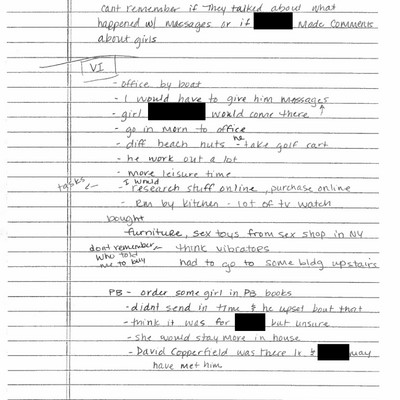 cant remember if they talked about what
happened w/ massages or if made comments
about girls
VI
- office by boat
- I would have to give him messages
- girl would come there
- go in morn to office
- diff beach huts - he take golf cart
- he work out a lot
- more leisure time
tasks ← - I would research stuff online, purchase online
- Rm by kitchen - lot of tv watch
bought
furniture, sex toys from sex shop in NY
dont remember who told me to buy ← think vibrators
had to go to some bldg upstairs
PB - order some girl in PB books
- didnt send in time & he upset bout that
- think it was for but unsure
- she would stay more in house
- David Copperfield was there 1x & may
have met him